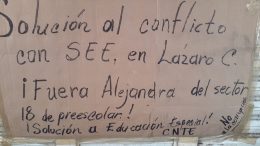 Solución al conflicto
con SEE, en Lázaro C.
¡Fuera Alejandra del sector
18 de preescolar!
¡Solución a Educación Especial!
CNTE
No